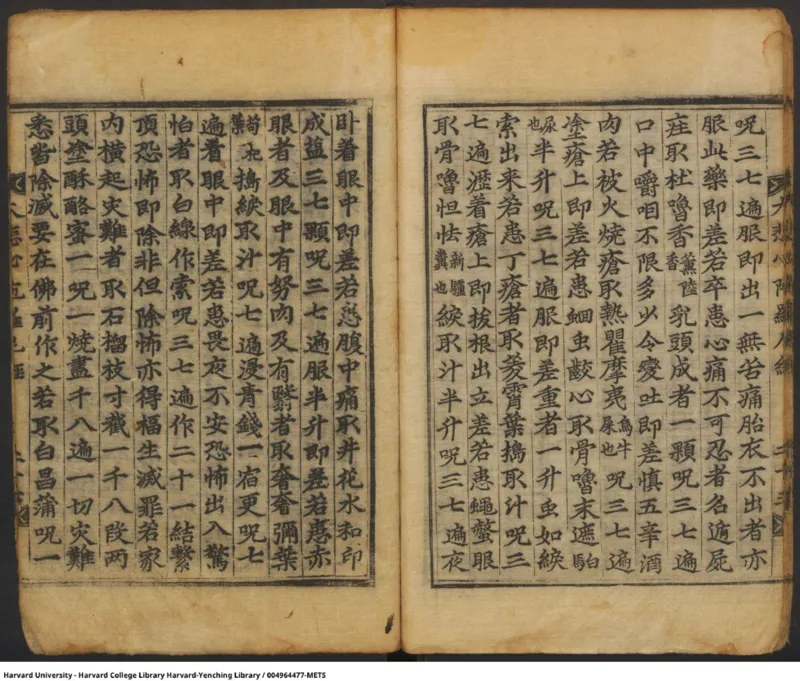 呪三七遍服即出一無苦痛胎衣不出者亦
服此藥即差若卒患心痛不可忍者名遁屍
疰取杜嚕香薰陸香乳頭成者一顆呪三七遍
口中嚼咽不限多少令變吐即差慎五辛酒
肉若被火燒瘡取熱瞿摩夷烏牛屎也呪三七遍
塗瘡上即差若患蛔虫齩心取骨嚕末遮白馬
尿也半升呪三七遍服即差重者一升虫如綟
索出来若患丁瘡者取葉擣取汁呪三
七遍瀝着瘡上即拔根出立差若患蠅螫眼
取骨嚕怛佉新驢糞也綟取汁半升呪三七遍夜
卧着眼中即差若患腹中痛取井花水和印
成鹽三七顆呪三七遍服半升即差若患赤
眼者及眼中有努肉及有翳者取奢奢彌葉
苟杞葉擣綟取汁呪七遍浸青錢一宿更呪七
遍着眼中即差若患畏夜不安恐怖出入驚
怕者取白線作索呪三七遍作二十一結繫
頂恐怖即除非但除怖亦得福生滅罪若家
内橫起灾難者取石榴枝寸截一千八段兩
頭塗酥酪蜜一呪一燒盡千八遍一切灾難
悉皆除滅要在佛前作之若取白昌蒲呪一
Harvard University - Harvard College Library Harvard-Yenching Library / 004964477-METS